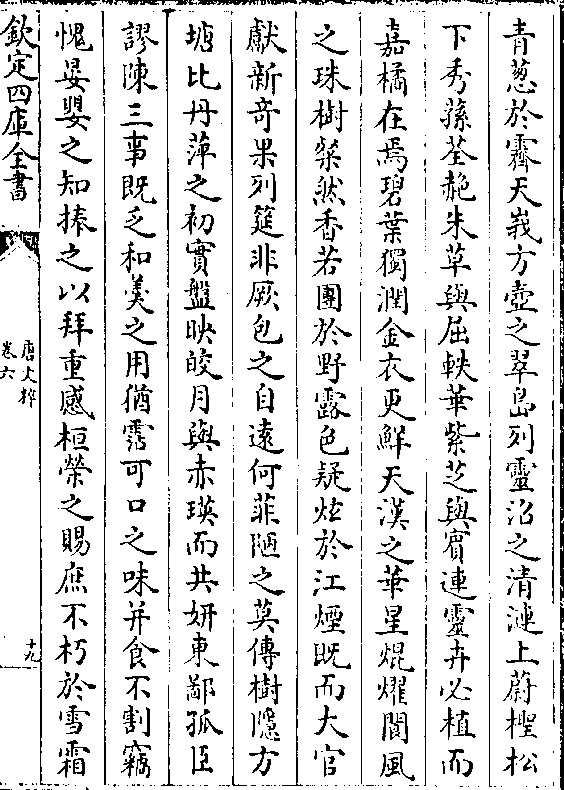 青葱於霽天峩方壺之翠島列靈沼之清漣上蔚檉松
下秀蓀荃赩朱草與屈軼華紫芝與賓連靈卉必植而
嘉橘在焉碧葉獨潤金衣更鮮天漢之華星焜燿閬風
之珠樹粲然香若團於野露色疑炫於江煙既而大官
獻新竒果列筵非厥包之自遠何菲陋之莫傳樹隱方
塘比丹萍之初實盤映皎月與赤瑛而共妍東鄙孤臣
謬陳三事既乏和羮之用猶霑可口之味并食不割竊
愧晏嬰之知捧之以拜重感桓榮之賜庶不朽於雪霜
欽定四庫全書
唐文粹
卷六
十九